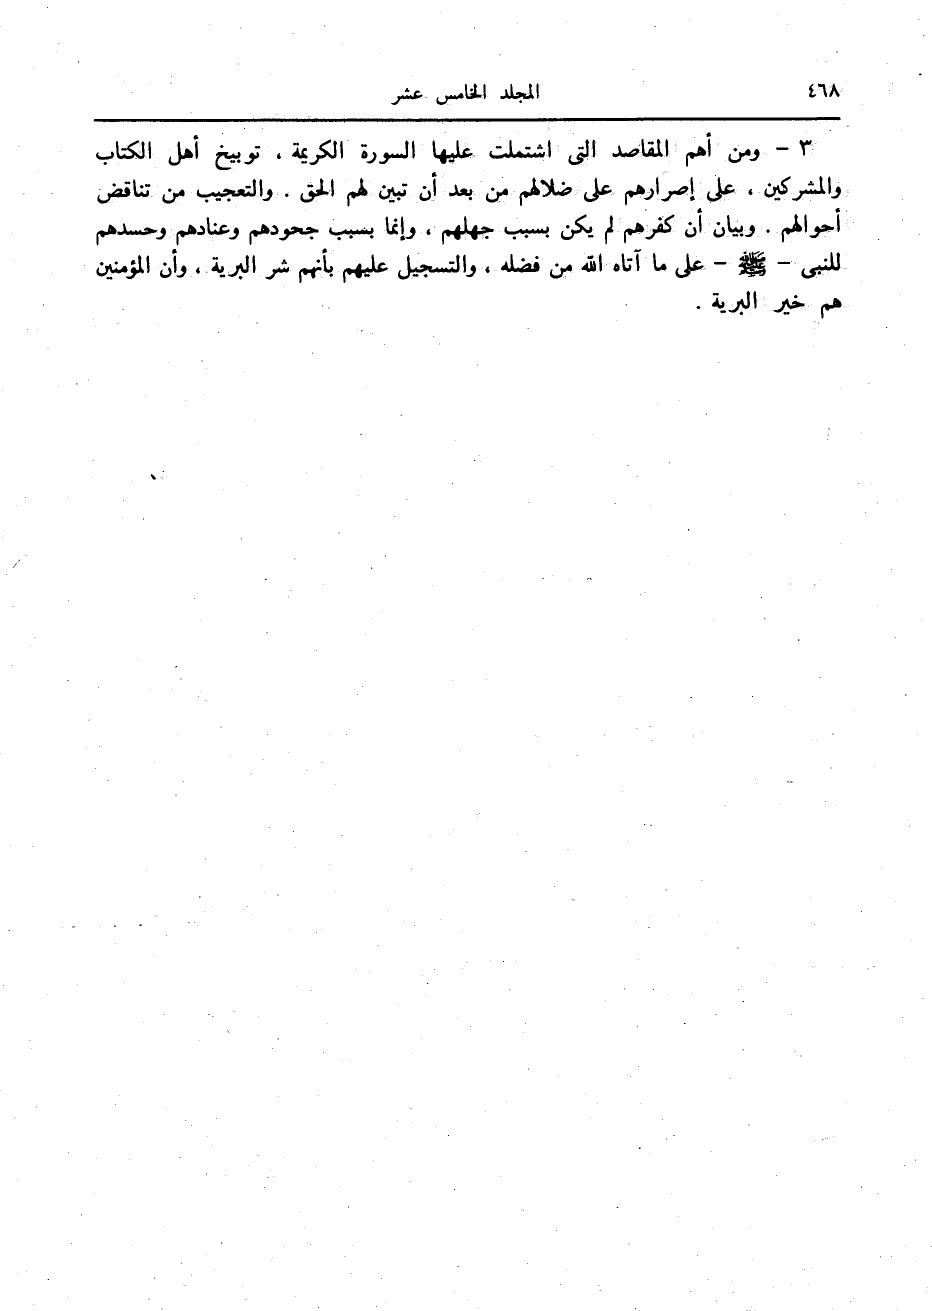 ٤٦٨ المجلد الخامس عشر
٣ – ومن أهم المقاصد التى اشتملت عليها السورة الكريمة ، توبيخ أهل الكتاب
والمشركين ، على إصرارهم على ضلالهم من بعد أن تبين لهم الحق . والتعجيب من تناقض
أحوالهم . وبيان أن كفرهم لم يكن بسبب جهلهم ، وإنما بسبب جحودهم وعنادهم وحسدهم
للنبى – ﷺ – على ما آتاه الله من فضله ، والتسجيل عليهم بأنهم شر البرية ، وأن المؤمنين
هم خير البرية .